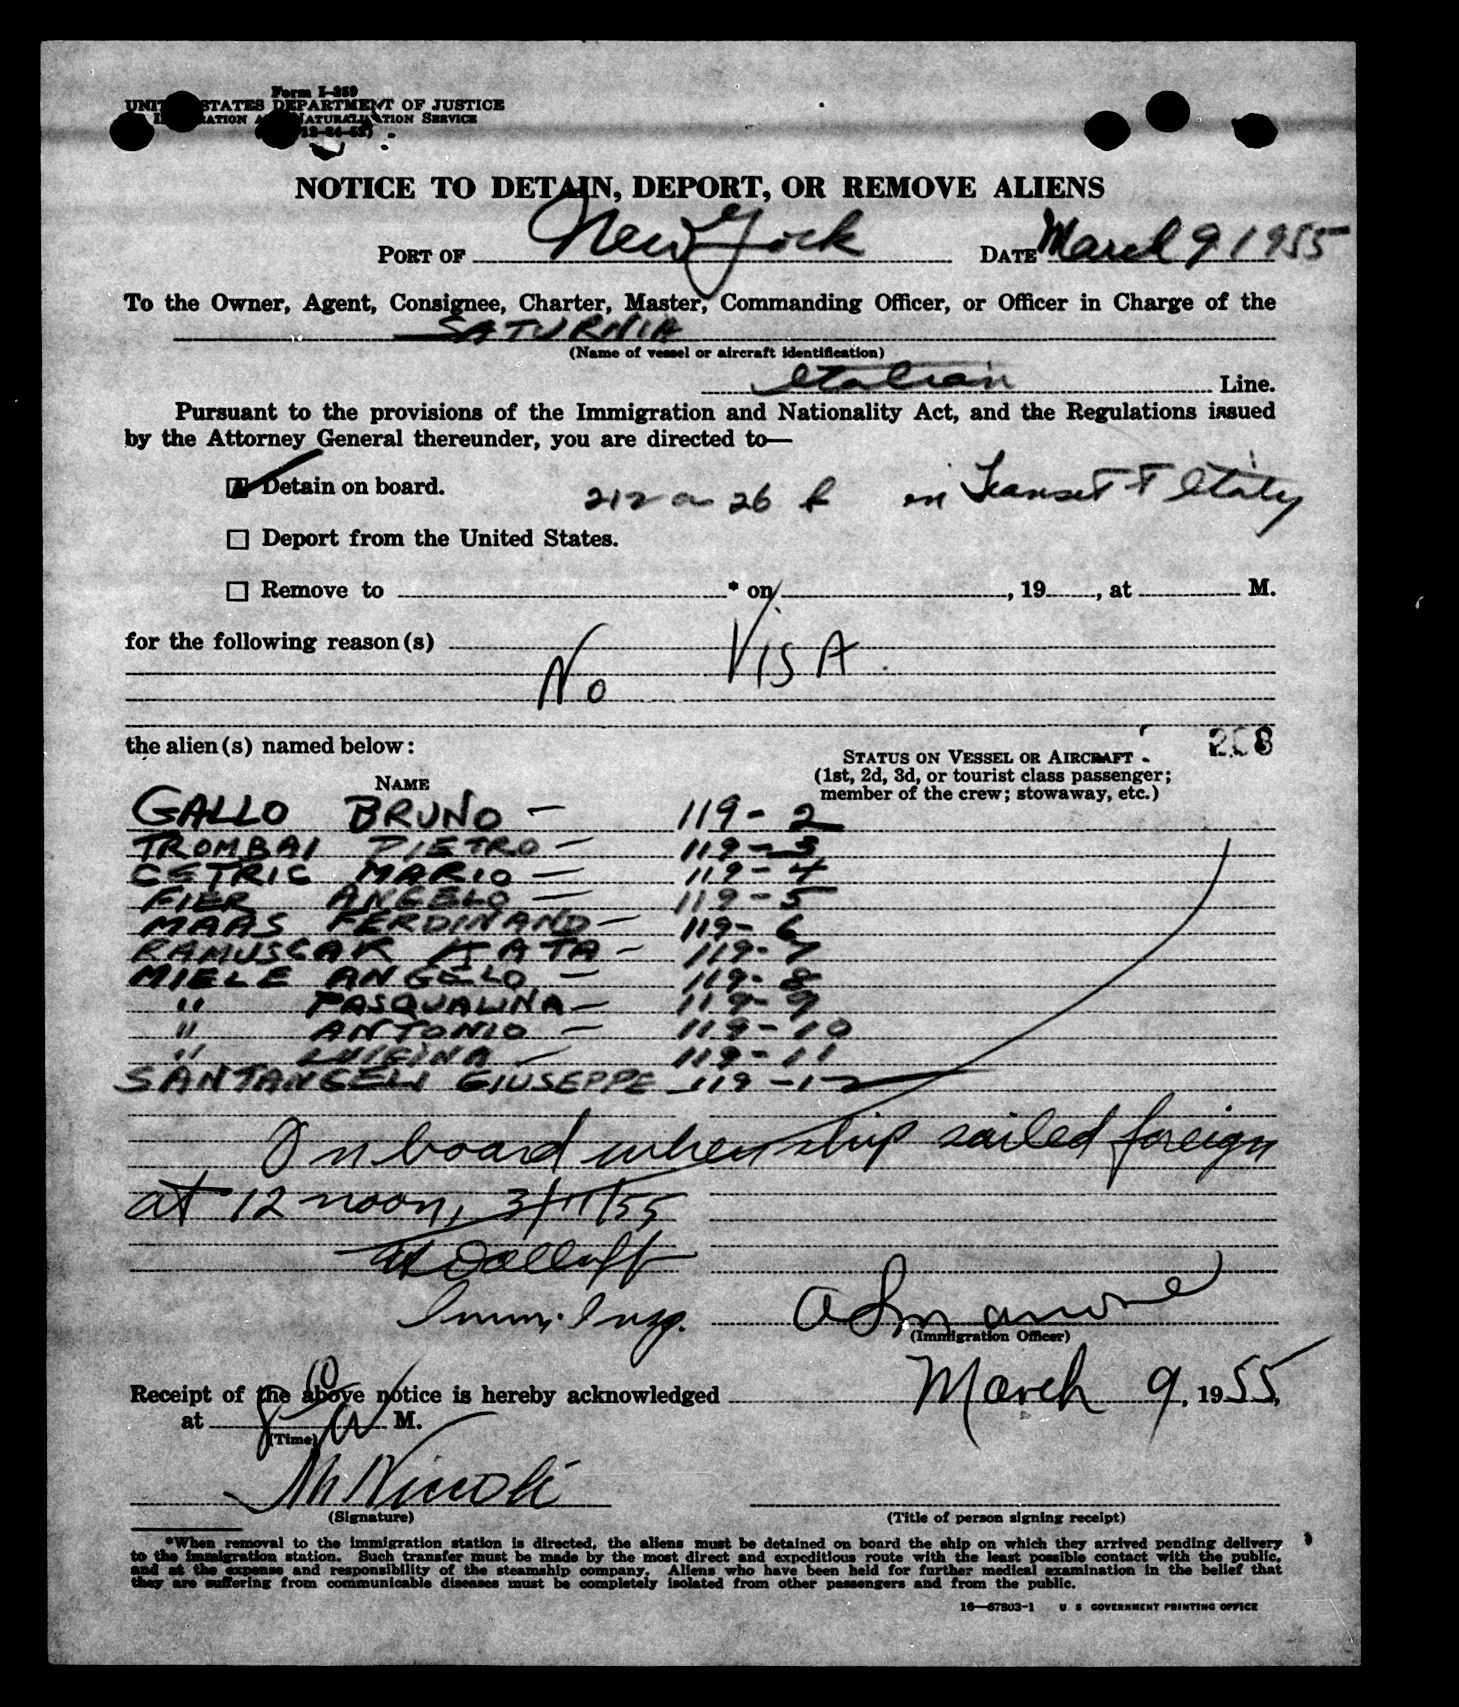 Form I-259
UNITED STATES DEPARTMENT OF JUSTICE
IMMIGRATION AND NATURALIZATION SERVICE
NOTICE TO DETAIN, DEPORT, OR REMOVE ALIENS
PORT OF New York DATE March 9 1955
To the Owner, Agent, Consignee, Charter, Master, Commanding Officer, or Officer in Charge of the
SATURNIA
(Name of vessel or aircraft identification)
Italian Line.
Pursuant to the provisions of the Immigration and Nationality Act, and the Regulations issued
by the Attorney General thereunder, you are directed to—
Detain on board. 212 a 26 in Transit Italy
Deport from the United States.
Remove to * on , 19 , at M.
for the following reason(s)
No VISA.
the alien(s) named below: 208
STATUS ON VESSEL OR AIRCRAFT
(1st, 2d, 3d, or tourist class passenger;
member of the crew; stowaway, etc.)
NAME
GALLO BRUNO — 119-2
TROMBAI PIETRO — 119-3
CETRIC MARIO — 119-4
FIER ANGELO — 119-5
MAAS FERDINAND — 119-6
RAMUSCAK KATA — 119-7
MIELE ANGELO — 119-8
" PASQUALINA — 119-9
" ANTONIO — 119-10
" LUIGINA — 119-11
SANTANGELI GIUSEPPE 119-12
On board when ship sailed foreign
at 12 noon, 3/11/55
Imm. Insp.
(Immigration Officer)
Receipt of the above notice is hereby acknowledged March 9, 1955,
at M.
(Time)
M Niccoli
(Signature) (Title of person signing receipt)
*When removal to the immigration station is directed, the aliens must be detained on board the ship on which they arrived pending delivery
to the immigration station. Such transfer must be made by the most direct and expeditious route with the least possible contact with the public,
and at the expense and responsibility of the steamship company. Aliens who have been held for further medical examination in the belief that
they are suffering from communicable diseases must be completely isolated from other passengers and from the public.
16—67803-1 U. S. GOVERNMENT PRINTING OFFICE